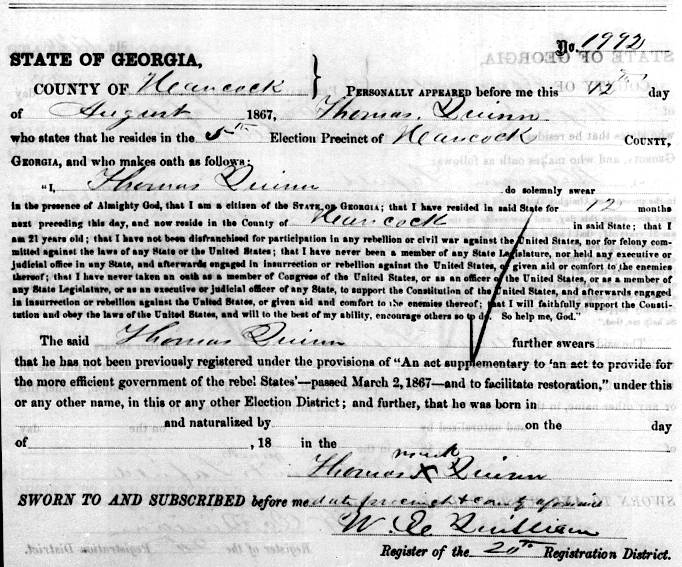 No. 1992
STATE OF GEORGIA,
COUNTY OF Hancock } PERSONALLY APPEARED before me this 12th day
of August 1867, Thomas Quinn
who states that he resides in the 5th Election Precinct of Hancock COUNTY,
GEORGIA, and who makes oath as follows:
"I, Thomas Quinn do solemnly swear
in the presence of Almighty God, that I am a citizen of the STATE OF GEORGIA; that I have resided in said State for 12 months
next preceding this day, and now reside in the County of Hancock in said State; that I
am 21 years old; that I have not been disfranchised for participation in any rebellion or civil war against the United States, nor for felony com-
mitted against the laws of any State or the United States; that I have never been a member of any State Legislature, nor held any executive or
judicial office in any State, and afterwards engaged in insurrection or rebellion against the United States, or given aid or comfort to the enemies
thereof; that I have never taken an oath as a member of Congress of the United States, or as an officer of the United States, or as a member of
any State Legislature, or as an executive or judicial officer of any State, to support the Constitution of the United States, and afterwards engaged
in insurrection or rebellion against the United States, or given aid and comfort to the enemies thereof; that I will faithfully support the Consti-
tution and obey the laws of the United States, and will to the best of my ability, encourage others so to do. So help me, God."
The said Thomas Quinn further swears
that he has not been previously registered under the provisions of "An act supplementary to 'an act to provide for
the more efficient government of the rebel States'—passed March 2, 1867—and to facilitate restoration," under this
or any other name, in this or any other Election District; and further, that he was born in
and naturalized by on the day
of , 18 in the
mark
Thomas X Quinn
SWORN TO AND SUBSCRIBED before me date precinct & county
W. Quillian
Register of the 20th Registration District.